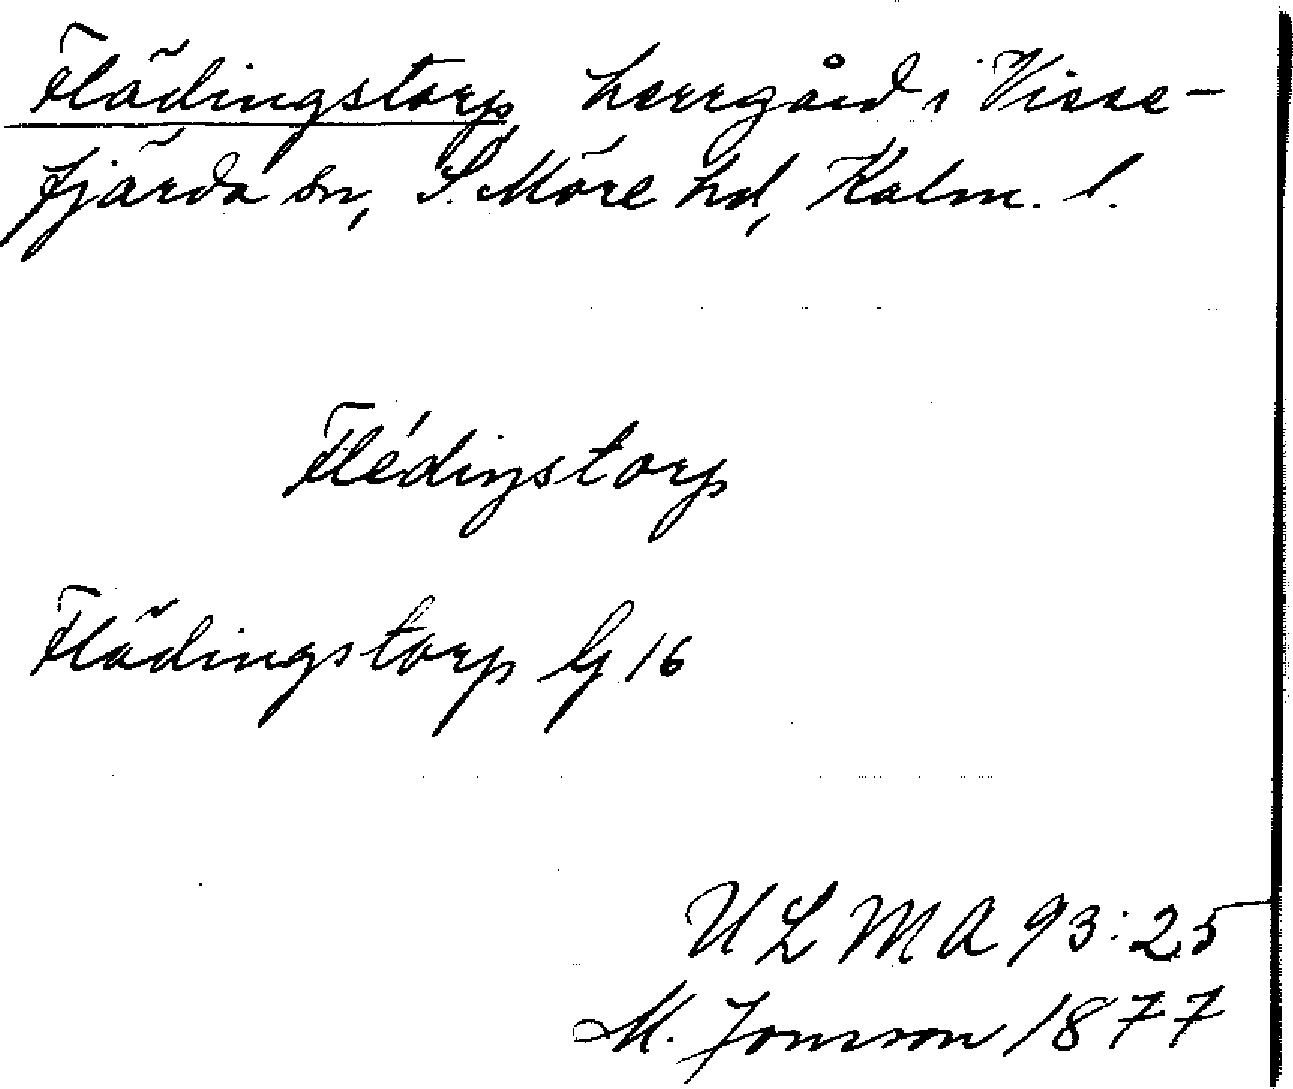 Flädingstorp herrgård i Visse-
fjärda sn, S. Möre hd, Kalm. l.
Flédingstorp
Flädingstorp G 16
ULMA 93:25
M. Jonsson 1877